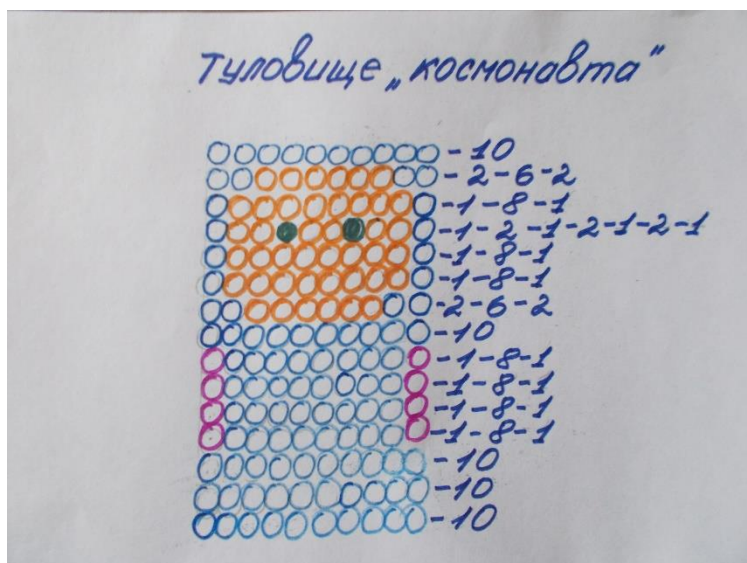 Туловище „космонавта"
-10
-2-6-2
-1-8-1
-1-2-1-2-1-2-1
-1-8-1
-1-8-1
-2-6-2
-10
-1-8-1
-1-8-1
-1-8-1
-1-8-1
-10
-10
-10